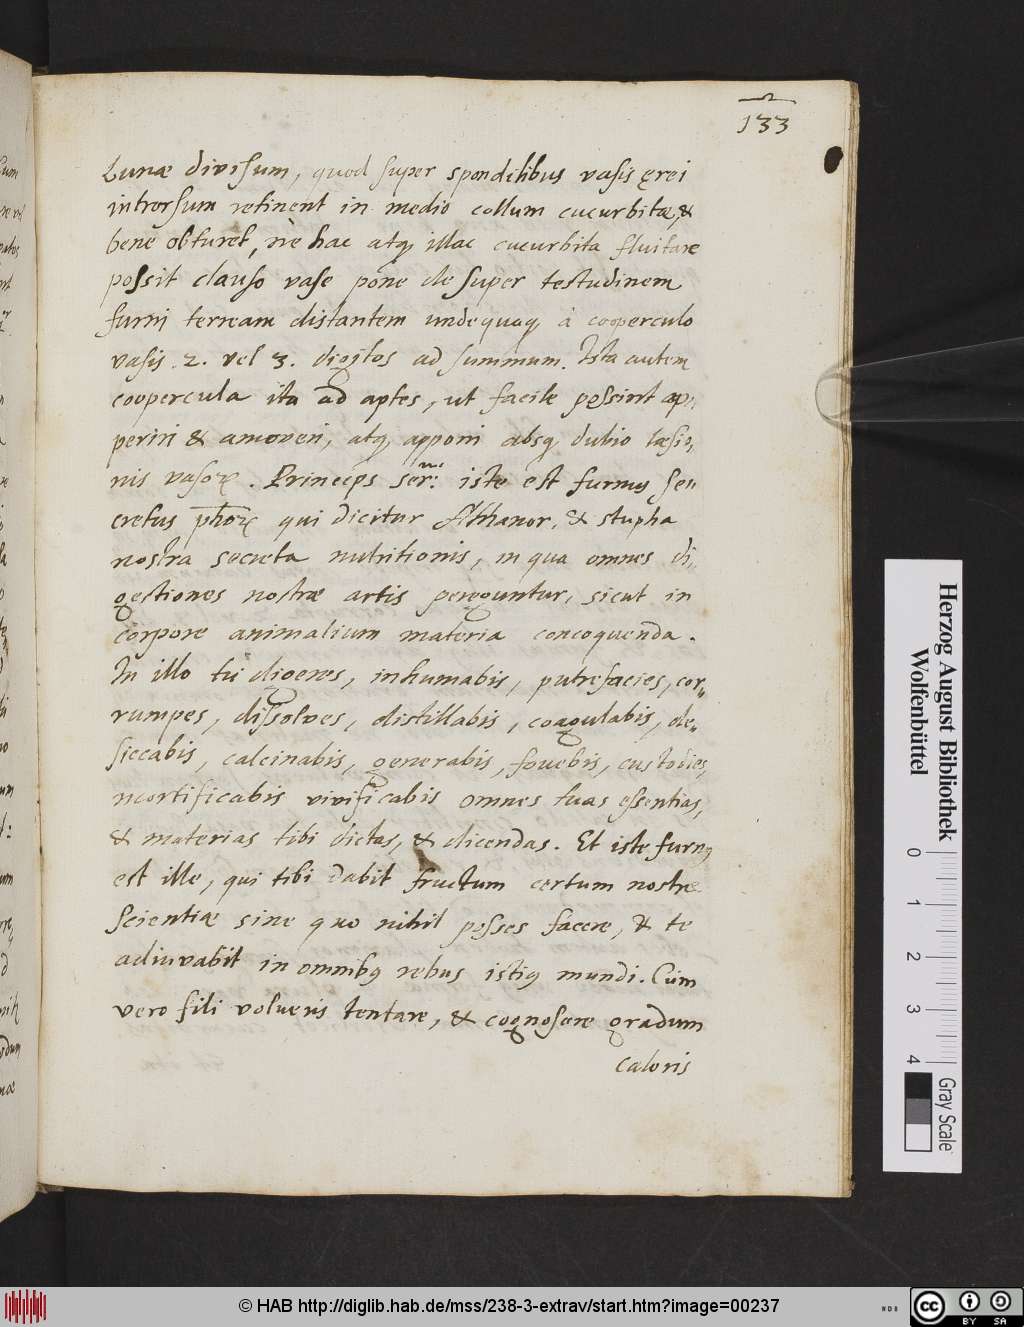 133
Lunæ divisum, quod super spondilibus vasis ęrei
introrsum retinent in medio collum cucurbitæ, &
bene obturet, ne hac atq; illac cucurbita fluitare
possit clauso vase pone de super testudinem
furni terream distantem undequaq; à cooperculo
vasis .2. vel 3. digitos ad summum. Ista autem
coopercula ita ad aptes, ut facile possint ap,,
periri & amoveri, atq; apponi absq; dubio læsio,,
nis vasoꝝ. Princeps ser.me iste est furnus se,,
cretus phoꝝ qui dicitur Athanor, & stupha
nostra secreta nutritionis, in qua omnes di,,
gestiones nostræ artis pereguntur, sicut in
corpore animalium materia concoquenda.
In illo tu digeres, inhumabis, putrefacies, cor,,
rumpes, dissolves, distillabis, coagulabis, de,,
siccabis, calcinabis, generabis, fovebis, custodies,
mortificabis vivificabis omnes tuas essentias,
& materias tibi dictas, & dicendas. Et iste furnꝰ
est ille, qui tibi dabit fructum certum nostræ
scientiæ sine quo nihil posses facere, & te
adiuvabit in omnibꝰ rebus istiꝰ mundi. Cùm
vero fili volueris tentare, & cognoscere gradum
caloris
Herzog August Bibliothek
Wolfenbüttel
0 1 2 3 4
Gray Scale
© HAB http://diglib.hab.de/mss/238-3-extrav/start.htm?image=00237
NDB
cc BY SA